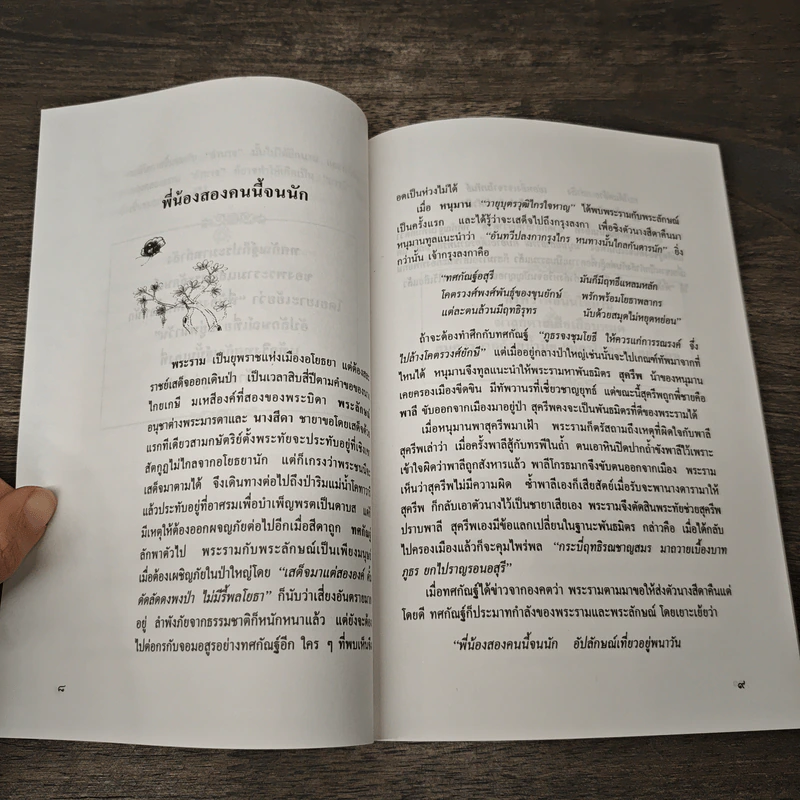 พี่น้องสองคนนี้จนนัก
พระราม เป็นยุพราชแห่งเมืองอโยธยา แต่ต้องสละ
ราชย์เสด็จออกเดินป่า เป็นเวลาสิบสี่ปีตามคำขอของนาง
ไกยเกษี มเหสีองค์ที่สองของพระบิดา พระลักษมณ์
อนุชาต่างพระมารดาและ นางสีดา ชายาขอโดยเสด็จด้วย
แรกทีเดียวสามกษัตริย์ตั้งพระทัยจะประทับอยู่ที่เชิงเขา
สัตกูฏไม่ไกลจากอโยธยานัก แต่ก็เกรงว่าพระชนนีจะ
เสด็จมาตามได้ จึงเดินทางต่อไปถึงป่าริมแม่น้ำโคทาวารี
แล้วประทับอยู่ที่อาศรมเพื่อบำเพ็ญพรตเป็นดาบส แต่ก็
มีเหตุให้ต้องออกผจญภัยต่อไปอีกเมื่อสีดาถูก ทศกัณฐ์
ลักพาตัวไป พระรามกับพระลักษณ์เป็นเพียงมนุษย์
เมื่อต้องเผชิญภัยในป่าใหญ่โดย “เสด็จมาแต่สององค์
ดัดลัดดงพงป่า ไม่มีรี้พลโยธา” ก็นับว่าเสี่ยงอันตรายมาก
อยู่ ลำพังภัยจากธรรมชาติก็หนักหนาแล้ว แต่ยังจะต้อง
ไปต่อกรกับจอมอสูรอย่างทศกัณฐ์อีก ใคร ๆ ที่พบเห็นจึง
๘
อดเป็นห่วงไม่ได้
เมื่อ หนุมาน “วายุบุตรวุฒิไกรใจหาญ” ได้พบพระรามกับพระลักษณ์
เป็นครั้งแรก และได้รู้ว่าจะเสด็จไปถึงกรุงลงกา เพื่อชิงตัวนางสีดาคืนมา
หนุมานทูลแนะนำว่า “อันทวีปลงกากรุงไกร หนทางนั้นไกลกันดารนัก” ยิ่ง
กว่านั้น เจ้ากรุงลงกาคือ
“ทศกัณฐ์อสุรี มันก็มีฤทธีแหลมหลัก
โคตรวงศ์พงศ์พันธุ์ของขุนยักษ์ พรักพร้อมโยธาพลากร
แต่ละตนล้วนมีฤทธิรุทร นับด้วยสมุดไม่หยุดหย่อน”
ถ้าจะต้องทำศึกกับทศกัณฐ์ “ภูธรจงซุมโยธี ให้ควรแก่การรณรงค์ จึ่ง
ไปล้างโคตรวงศ์ยักษี” แต่เมื่ออยู่กลางป่าใหญ่เช่นนั้นจะไปเกณฑ์ทัพมาจากที่
ไหนได้ หนุมานจึงทูลแนะนำให้พระรามหาพันธมิตร สุครีพ น้าของหนุมาน
เคยครองเมืองขีดขิน มีทัพวานรที่เชี่ยวชาญยุทธ์ แต่ขณะนี้สุครีพถูกพี่ชายคือ
พาลี ขับออกจากเมืองมาอยู่ป่า สุครีพคงจะเป็นพันธมิตรที่ดีของพระรามได้
เมื่อหนุมานพาสุครีพมาเฝ้า พระรามก็ตรัสถามถึงเหตุที่ผิดใจกับพาลี
สุครีพเล่าว่า เมื่อครั้งพาลีสู้กับทรพีในถ้ำ ตนเอาหินปิดปากถ้ำขังพาลีไว้เพราะ
เข้าใจผิดว่าพาลีถูกสังหารแล้ว พาลีโกรธมากจึงขับตนออกจากเมือง พระราม
เห็นว่าสุครีพไม่มีความผิด ซ้ำพาลีเองก็เสียสัตย์เมื่อรับจะพานางดารามาให้
สุครีพ ก็กลับเอาตัวนางไว้เป็นชายาเสียเอง พระรามจึงตัดสินพระทัยช่วยสุครีพ
ปราบพาลี สุครีพเองมีข้อแลกเปลี่ยนในฐานะพันธมิตร กล่าวคือ เมื่อได้กลับ
ไปครองเมืองแล้วก็จะคุมไพร่พล “กระบี่ฤทธิรณชาญสมร มาถวายเบื้องบาท
ภูธร ยกไปราญรอนอสุรี”
เมื่อทศกัณฐ์ได้ข่าวจากองคตว่า พระรามตามมาขอให้ส่งตัวนางสีดาคืนแต่
โดยดี ทศกัณฐ์ก็ประมาทกำลังของพระรามและพระลักษณ์ โดยเยาะเย้ยว่า
“พี่น้องสองคนนี้จนนัก อัปลักษณ์เที่ยวอยู่พนาวัน
๙